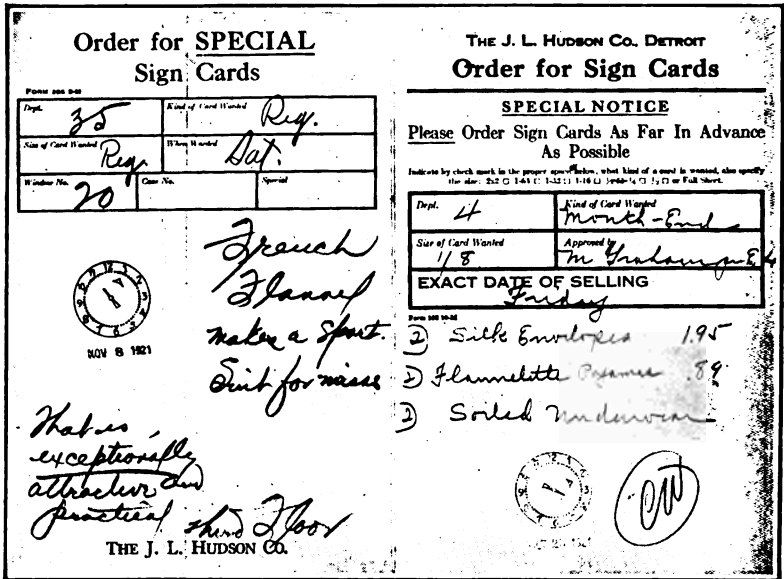 Order for SPECIAL
Sign Cards
Dept.
35
Kind of Card Wanted
Reg.
Size of Card Wanted
Reg.
When Wanted
Sat.
Window No.
20
Case No.
Special
French
Flannel
makes a Sport.
Suit for misses
NOV 8 1921
That is,
exceptionally
attractive and
practical
Third Floor
THE J. L. HUDSON CO.
THE J. L. HUDSON CO., DETROIT
Order for Sign Cards
SPECIAL NOTICE
Please Order Sign Cards As Far In Advance
As Possible
Indicate by check mark in the proper space below, what kind of a card is wanted, also specify
the size: 2x2 1-64 1-32 1-16 or Full Sheet.
Dept.
4
Kind of Card Wanted
Month-End
Size of Card Wanted
1/8
Approved by
M Graham
EXACT DATE OF SELLING
Friday
2) Silk Envelopes 1.95
1) Flannelette Pajamas .89
2) Soiled Underwear